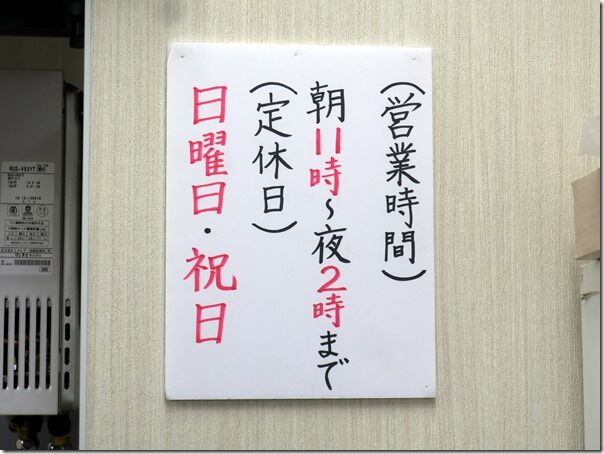 （営業時間）
朝11時～夜2時まで
（定休日）
日曜日・祝日
RUS-V53YT
リンナイ